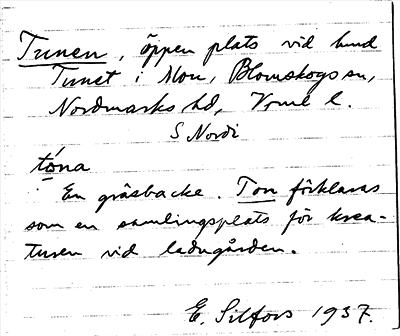 Tunen, öppen plats vid
Tunet i Mon, Blomskogs sn,
Nordmarks hd, Vrml l.
tóna
En gräsbacke. Ton förklaras
som en samlingsplats för krea-
turen vid ladugården.
E. Silfors 1937.